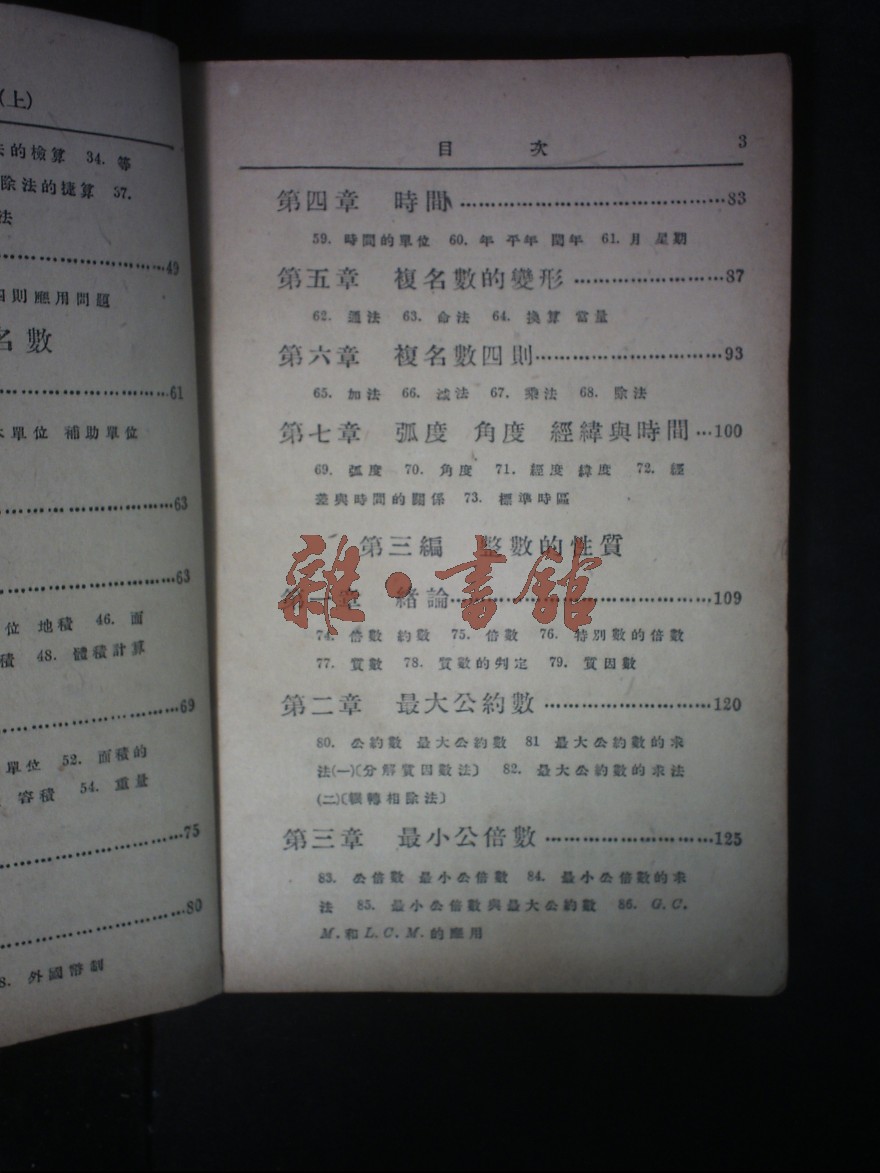 (上)
法的檢算 34. 等
除法的捷算 37.
法
49
四則應用問題
名數
61
本單位 補助單位
63
63
位 地積 46. 面
積 48. 體積計算
69
單位 52. 面積的
容積 54. 重量
75
80
8. 外國幣制
目 次 3
第四章 時間 83
59. 時間的單位 60. 年 平年 閏年 61. 月 星期
第五章 複名數的變形 87
62. 通法 63. 命法 64. 換算 當量
第六章 複名數四則 93
65. 加法 66. 減法 67. 乘法 68. 除法
第七章 弧度 角度 經緯與時間 100
69. 弧度 70. 角度 71. 經度 緯度 72. 經
差與時間的關係 73. 標準時區
第三編 整數的性質
雜·書館
第一章 緒論 109
74. 倍數 約數 75. 倍數 76. 特別數的倍數
77. 質數 78. 質數的判定 79. 質因數
第二章 最大公約數 120
80. 公約數 最大公約數 81 最大公約數的求
法(一)〔分解質因數法〕 82. 最大公約數的求法
(二)〔輾轉相除法〕
第三章 最小公倍數 125
83. 公倍數 最小公倍數 84. 最小公倍數的求
法 85. 最小公倍數與最大公約數 86. G. C.
M. 和 L. C. M. 的應用